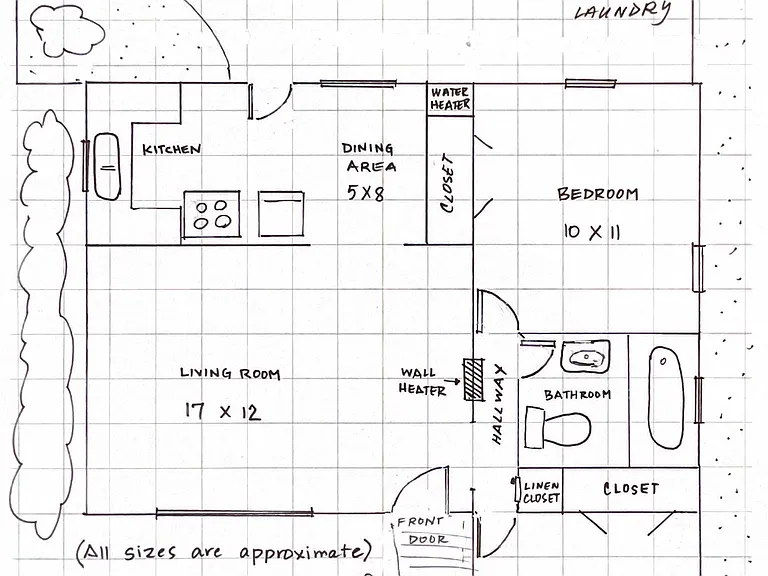 LAUNDRY
WATER
HEATER
KITCHEN
DINING
AREA
5X8
CLOSET
BEDROOM
10 X 11
LIVING ROOM
17 X 12
WALL
HEATER
HALLWAY
BATHROOM
LINEN
CLOSET
CLOSET
FRONT
DOOR
(All sizes are approximate)